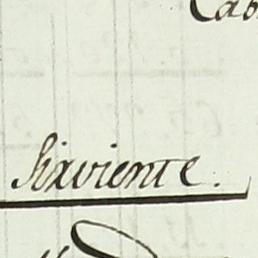 Cab
Sixviente.